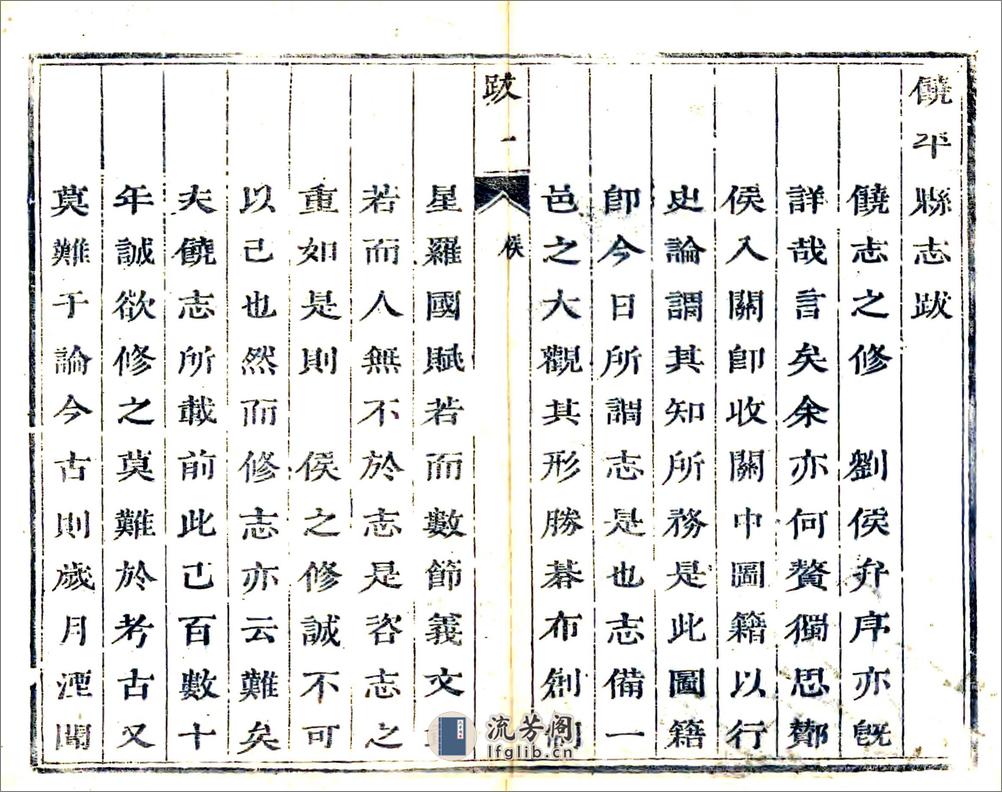 饒平縣志跋
饒志之修　劉侯弁序亦旣
詳哉言矣余亦何贅獨思酇
侯入關卽收關中圖籍以行
史論謂其知所務是此圖籍
卽今日所謂志是也志備一
邑之大觀其形勝碁布創制
跋　一　侯
星羅國賦若而數節義文
若而人無不於志是咨志之
重如是則　侯之修誠不可
以已也然而修志亦云難矣
夫饒志所載前此已百數十
年誠欲修之莫難於考古又
莫難于論今古則歲月湮閟
流芳阁
lfglib.cn